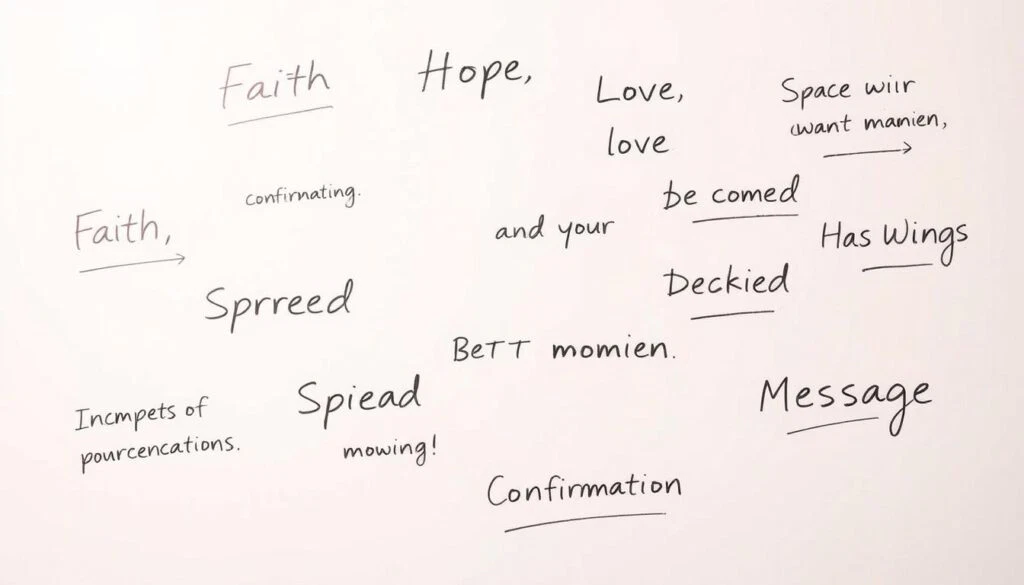 Faith
Hope,
Love,
love
Space wiir
(want mamien,
confirnating.
be comed
Faith,
and your
Has Wings
Sprreed
Deckied
BeTT momien.
Incmpets of
pourcencations.
Spiead
mowing!
Message
Confirmation